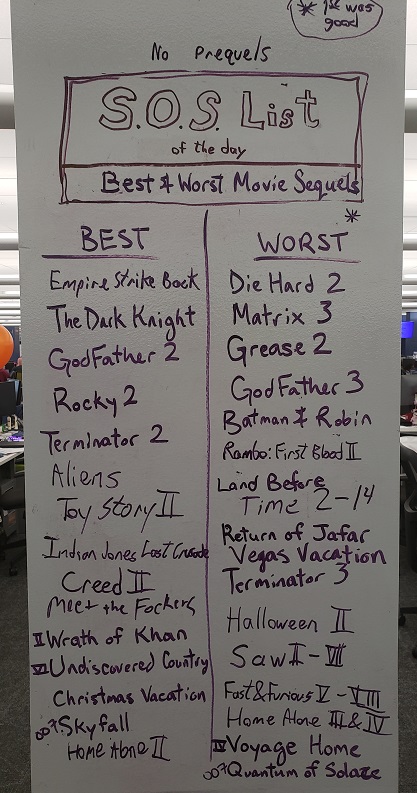 * 1st was
good
No Prequels
S.O.S. List
of the day
Best & Worst Movie Sequels
*
BEST
Empire Strike Back
The Dark Knight
GodFather 2
Rocky 2
Terminator 2
Aliens
Toy Story II
Indian Jones Last Crusade
Creed II
Meet the Fockers
II Wrath of Khan
VI Undiscovered Country
Christmas Vacation
007: Skyfall
Home Alone II
WORST
Die Hard 2
Matrix 3
Grease 2
GodFather 3
Batman & Robin
Rambo: First Blood II
Land Before
Time 2-14
Return of Jafar
Vegas Vacation
Terminator 3
Halloween II
Saw II - VII
Fast & Furious V - VIII
Home Alone III & IV
IV Voyage Home
007 Quantum of Solace